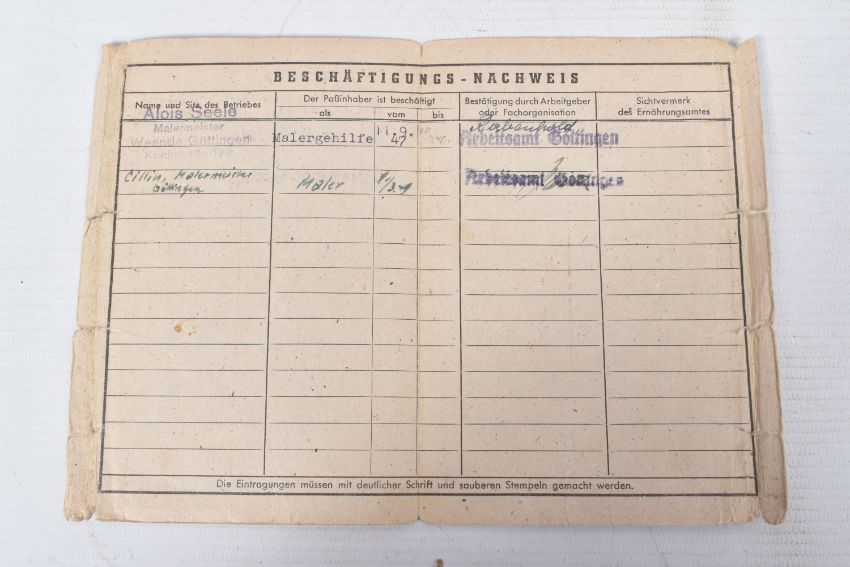 BESCHÄFTIGUNGS-NACHWEIS
Name und Sitz des Betriebes
Der Paßinhaber ist beschäftigt
als
vom
bis
Bestätigung durch Arbeitgeber
oder Fachorganisation
Sichtvermerk
des Ernährungsamtes
Alois Seele
Malermeister
Weende-Göttingen
Malergehilfe
11.9.
47
Arbeitsamt Göttingen
Cillin, Malermeister
Göttingen
Maler
Arbeitsamt Göttingen
Die Eintragungen müssen mit deutlicher Schrift und sauberen Stempeln gemacht werden.